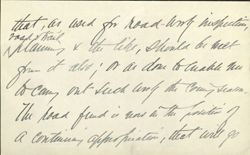 that, as used for road work inspection,
road & trail
planning & the like, should be met
from it also; or as done to enable me
to carry out such work the coming season.
The road fund is now in the position of
a continuing appropriation, that will go